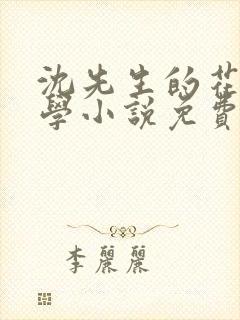 沈先生的花
學小說免費
李麗麗